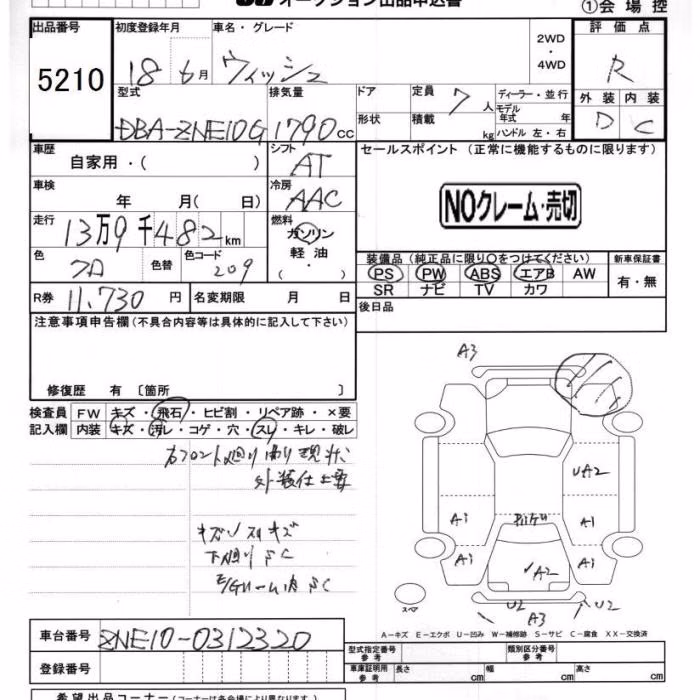 オークション出品申込書
①会場控
出品番号
5210
初度登録年月
18年6月
車名・グレード
ウィッシュ
2WD
・
4WD
評価点
R
外装 内装
D C
型式
DBA-ZNE10G
排気量
1790cc
ドア
形状
定員
7人
積載
kg
ディーラー・並行
モデル年式 年
ハンドル 左・右
車歴
自家用・( )
シフト
AT
車検
年 月( 日)
冷房
AAC
走行
13万9千482km
燃料
ガソリン
軽油
・( )
色
クロ
色替
色コード
209
R券
11,730円
名変期限 月 日
セールスポイント(正常に機能するものに限ります)
NOクレーム・売切
装備品(純正品に限り○をつけてください)
PS PW ABS エアB AW
SR ナビ TV カワ
新車保証書
有・無
後日品
注意事項申告欄(不具合内容等は具体的に記入して下さい)
修復歴 有〔箇所 〕
検査員記入欄
FW キズ・飛石・ヒビ割・リペア跡・×要
内装 キズ・汚レ・コゲ・穴・スレ・キレ・破レ
右フロント廻り曲り現状
外装仕上要
キズ スリキズ
下廻りサビC
A3
UA2
A1
A1
A1
A1
A2
U2
A3
U2
スペア
A−キズ E−エクボ U−凹み W−補修跡 S−サビ C−腐食 XX−交換済
車台番号
ZNE10-0312320
登録番号
型式指定番号 参考
類別区分番号 参考
車庫証明用 参考
長さ cm
幅 cm
高さ cm
希望出品コーナー(コーナーは各会場により異なります。)